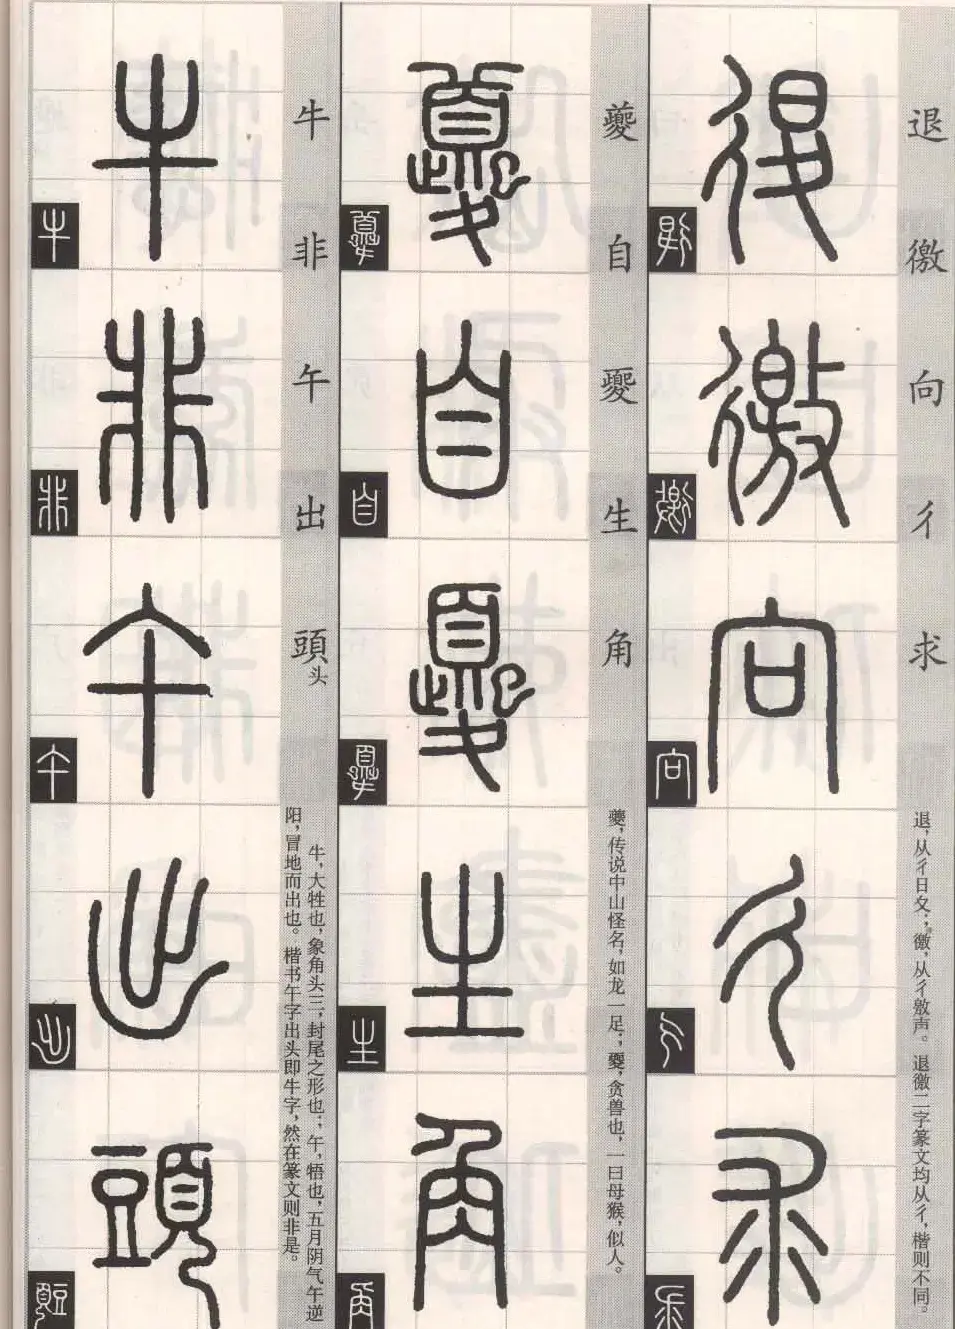 退徼向彳求
退，从彳日夂；徼，从彳敫声。退徼二字篆文均从彳，楷则不同。
退徼向彳求
夔自夒生角
夔，传说中山怪名，如龙一足；夒，贪兽也，一曰母猴，似人。
夔自夒生角
牛非午出頭头
牛，大牲也，象角头三，封尾之形也；午，牾也，五月阴气午逆
阳，冒地而出也。楷书午字出头即牛字，然在篆文则非是。
牛非午出頭